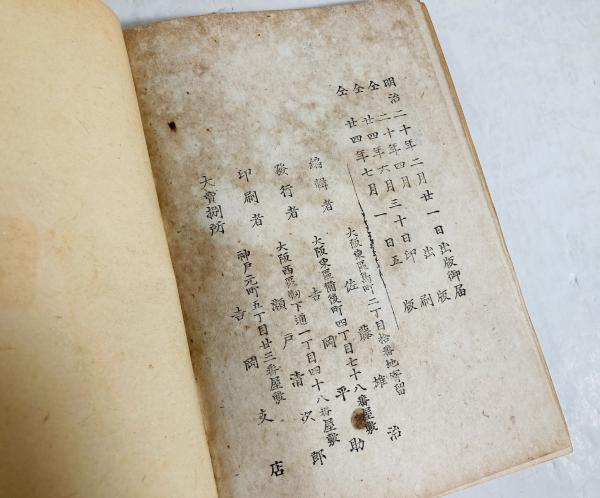 明治二十年二月廿一日出版御届
仝二十年四月出版
仝廿四年六月三十日印刷
仝廿四年七月一日五版
大阪東區島町二丁目拾番地寄留
編輯者 佐藤雄治
大阪東區備後町四丁目七十八番屋敷
發行者 吉岡平助
大阪西區靭下通一丁目四十八番屋敷
印刷者 瀬戸清次郎
神戸元町五丁目廿三番屋敷
大賣捌所 吉岡支店